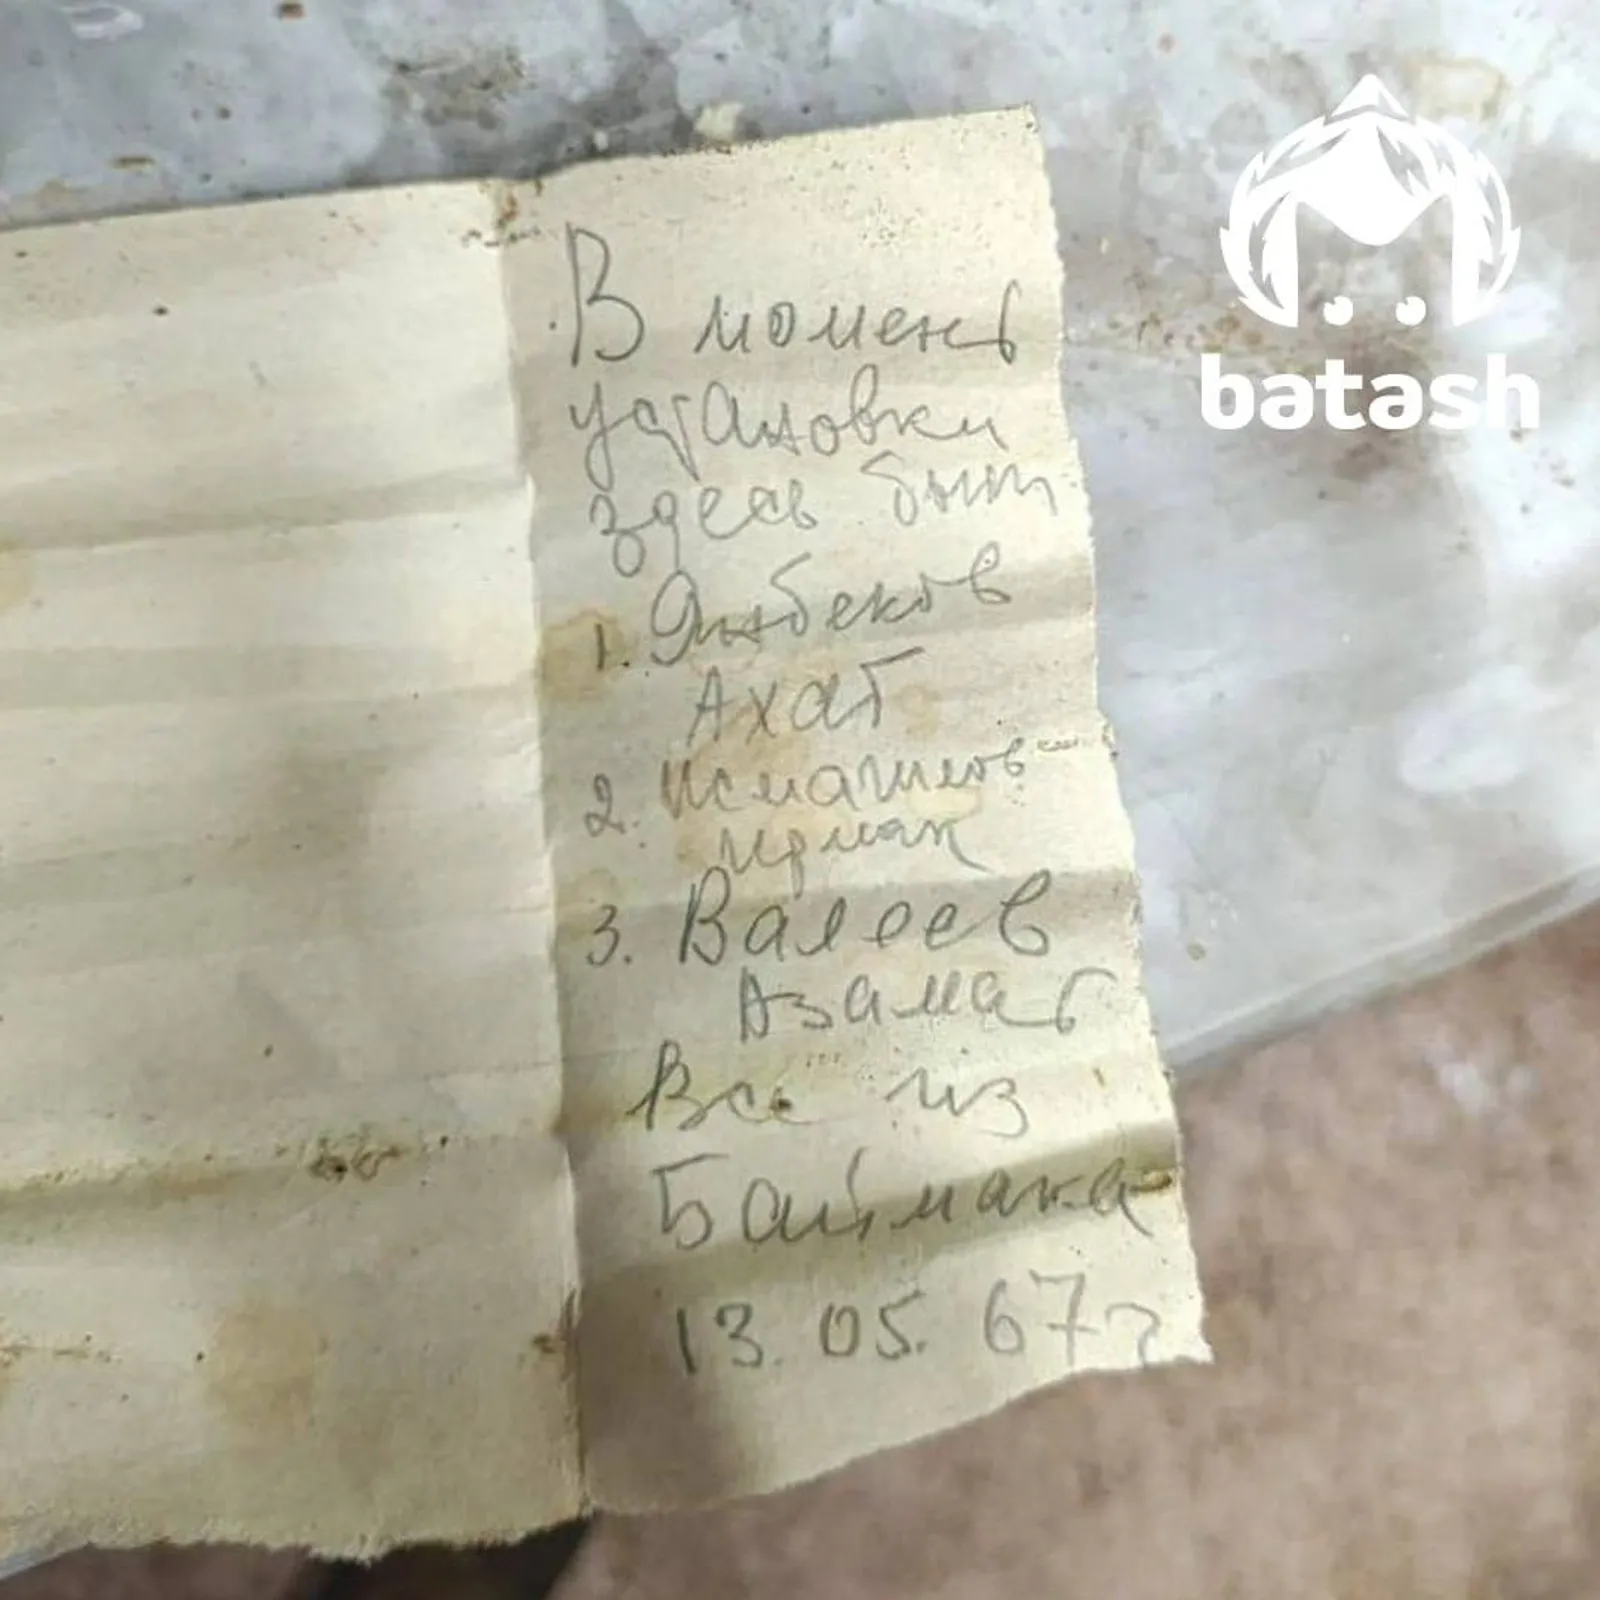 В момент
установки
здесь были
1. Янбеков
Ахат
2. Исмагилов
Ирмак
3. Валеев
Азамат
Все из
Баймака
13.05.67г
batash